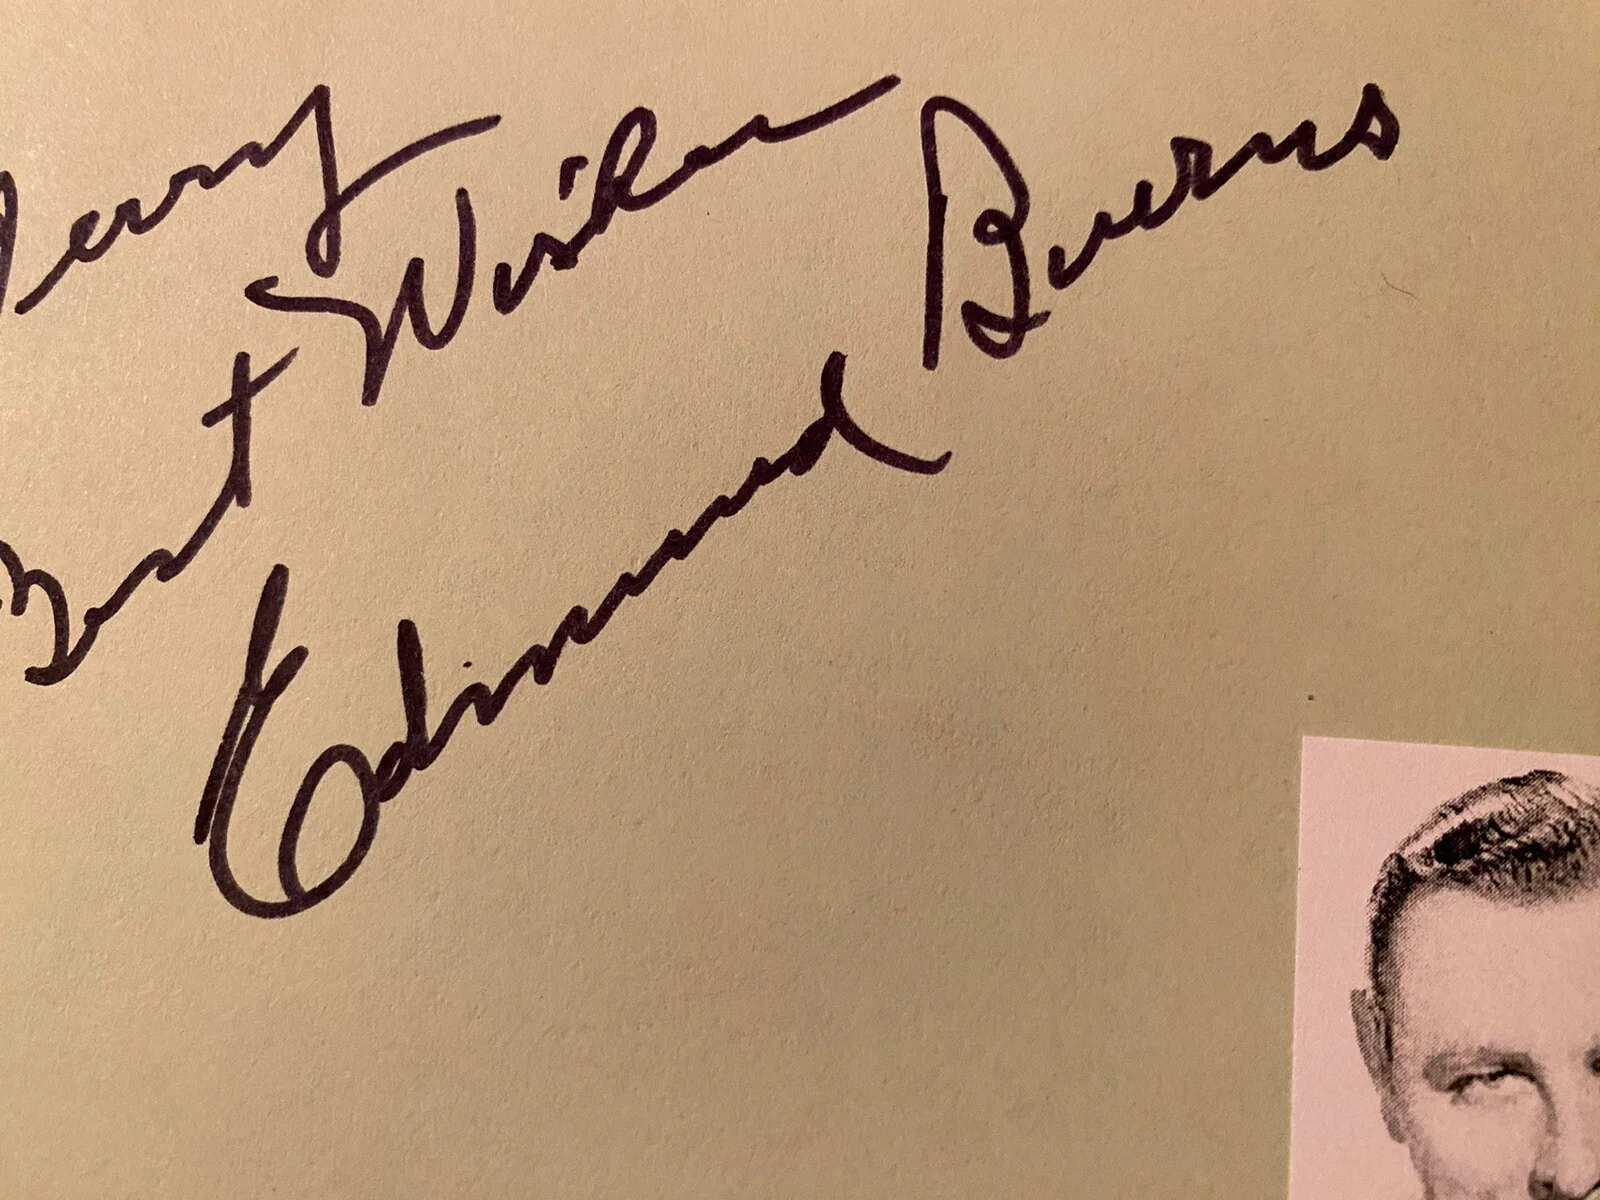 Best Wishes
Edmund Burns